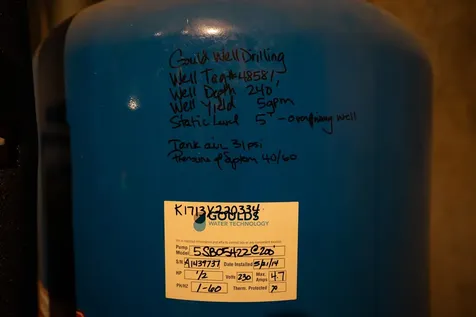 Gould Well Drilling
Well Tag# 48581
Well Depth 240'
Well Yield 5gpm
Static Level 5' - overflowing well
Tank air 31 psi
Pressure System 40/60
K1713V220334
GOULDS
WATER TECHNOLOGY
Pump
Model 5SB05422@200'
S/N A1439737 Date Installed 5/21/14
HP 1/2 Volts 230 Max. Amps 4.7
PH/HZ 1-60 Therm. Protected